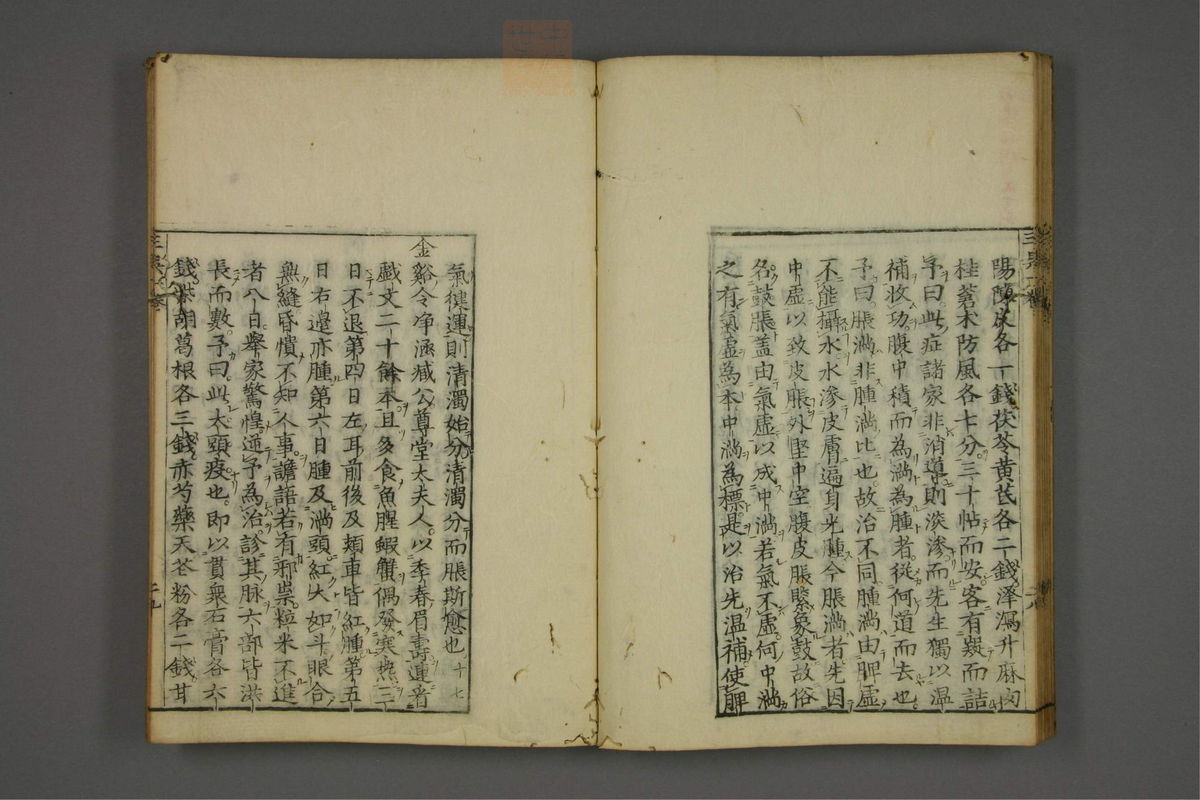 陽陳皮各一錢茯苓黄芪各二錢澤瀉升麻肉
桂蒼朮防風各七分三十帖而安客有疑而詰
予曰此症諸家非消導則淡滲而先生獨以温
補收功腹中積而為満為腫者從何道而去也
予曰脹満非腫満比也故治不同腫満由脾虚
不能攝水水滲皮膚遍身光腫今脹満者先因
中虚以致皮脹外堅中空腹皮脹緊象鼓故俗
名鼓脹盖由氣虚以成中満若氣不虚何中満
之有氣虚為本中満為標是以治先温補使脾
氣健運則清濁始分清濁分而脹斯愈也 十七
金谿令净涵臧公尊堂太夫人以季春眉壽連看
戯文二十餘本且多食魚腥鰕蟹偶發寒熱三
日不退第四日左耳前後及頰車皆紅腫第五
日右邊亦腫第六日腫及満頭紅大如斗眼合
無縫昏憒不知人事譫語若有邪祟粒米不進
者八日舉家驚惶逆予為治診其脉六部皆洪
長而數予曰此大頭疫也即以貫衆石膏各六
錢柴胡葛根各三錢赤芍藥天花粉各二錢甘